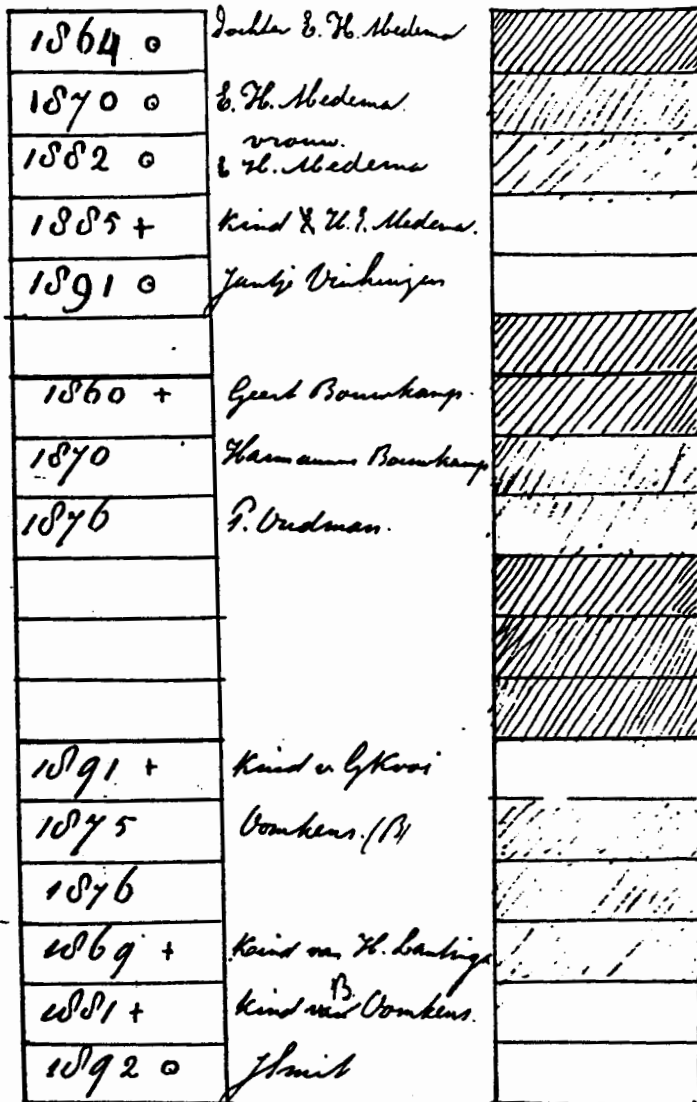 1864 ⊙ Dochter E. H. Medema
1870 ⊙ E. H. Medema.
vrouw.
1882 ⊙ E H. Medema
1885 + Kind H. E. Medema.
1891 ⊙ Jantje
1860 + Geert Bouwkamp.
1870 Harmannus Bouwkamp
1876
1891 + Kind v. G Kooi
1875 Oomkens. (B)
1876
1869 + Kind van H. Lantinga
B.
1881 + Kind van Oomkens.
1892 ⊙ J Smit